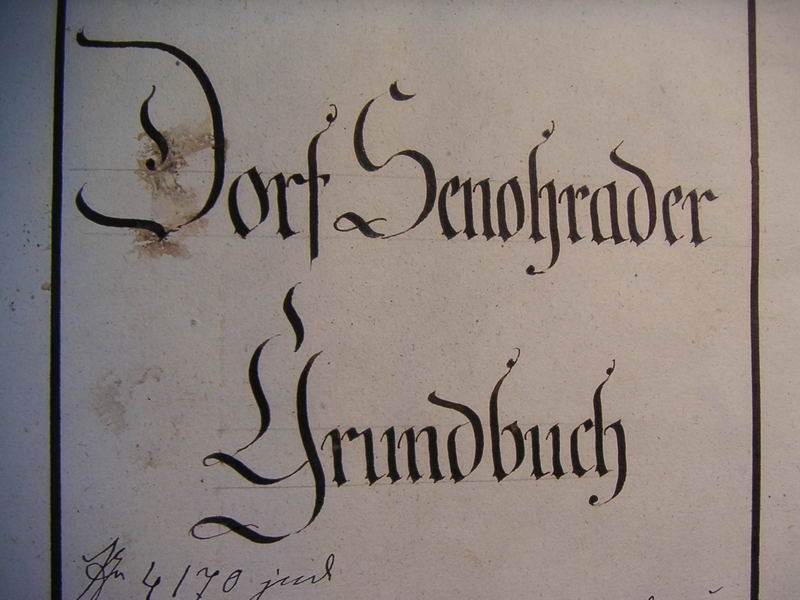 Dorf Senohrader
Grundbuch
4170